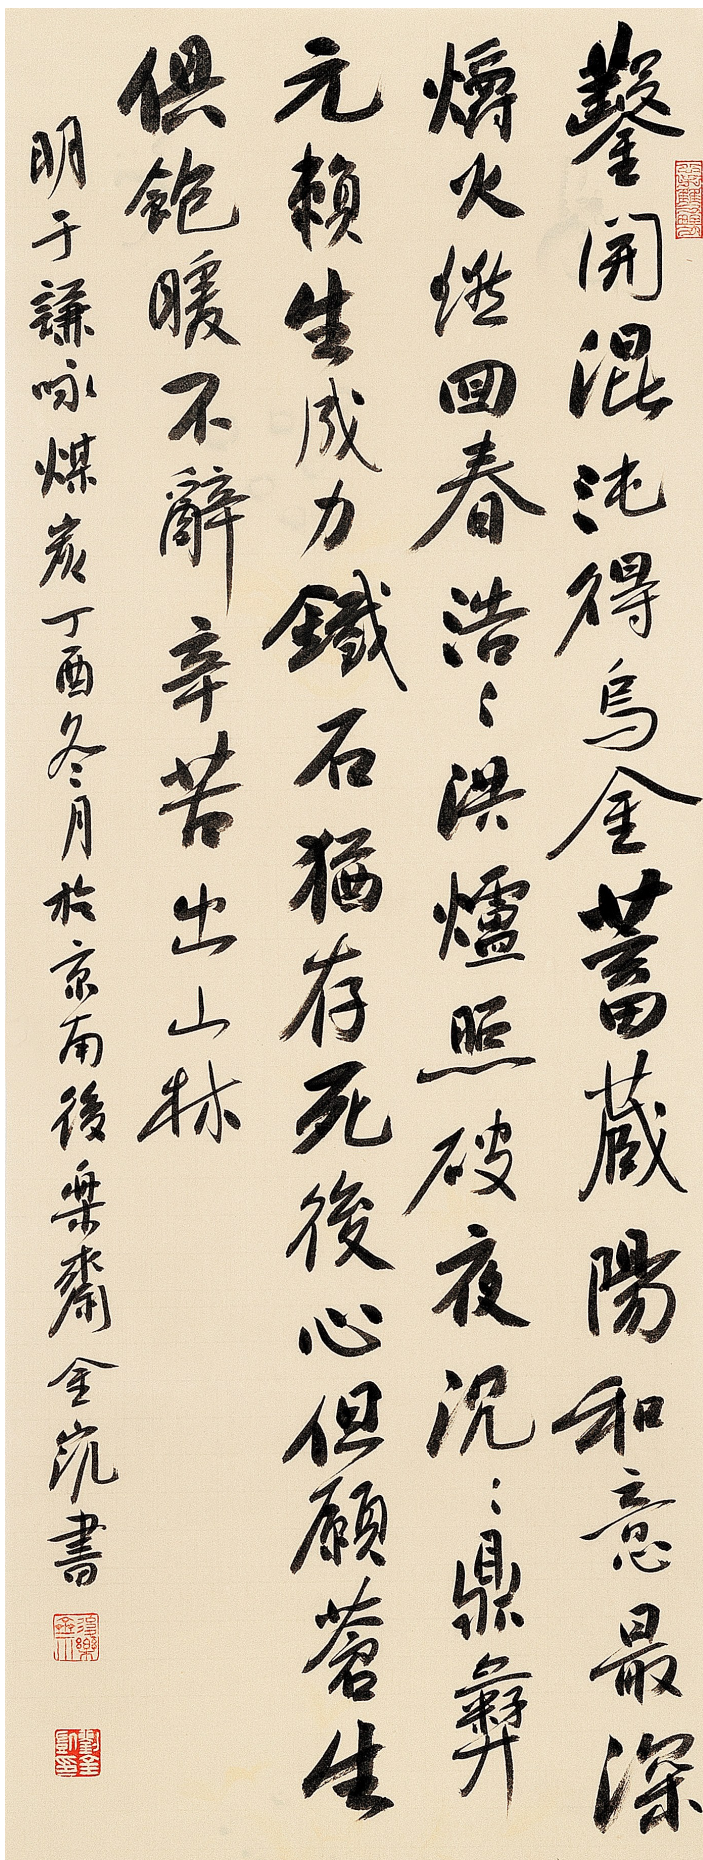 鑿開混沌得烏金蓄藏陽和意最深
爝火燃回春浩〻洪爐照破夜沉〻鼎彝
元賴生成力鐵石猶存死後心但願蒼生
俱飽暖不辭辛苦出山林
明于謙咏煤炭丁酉冬月於京南後樂齋金凯書